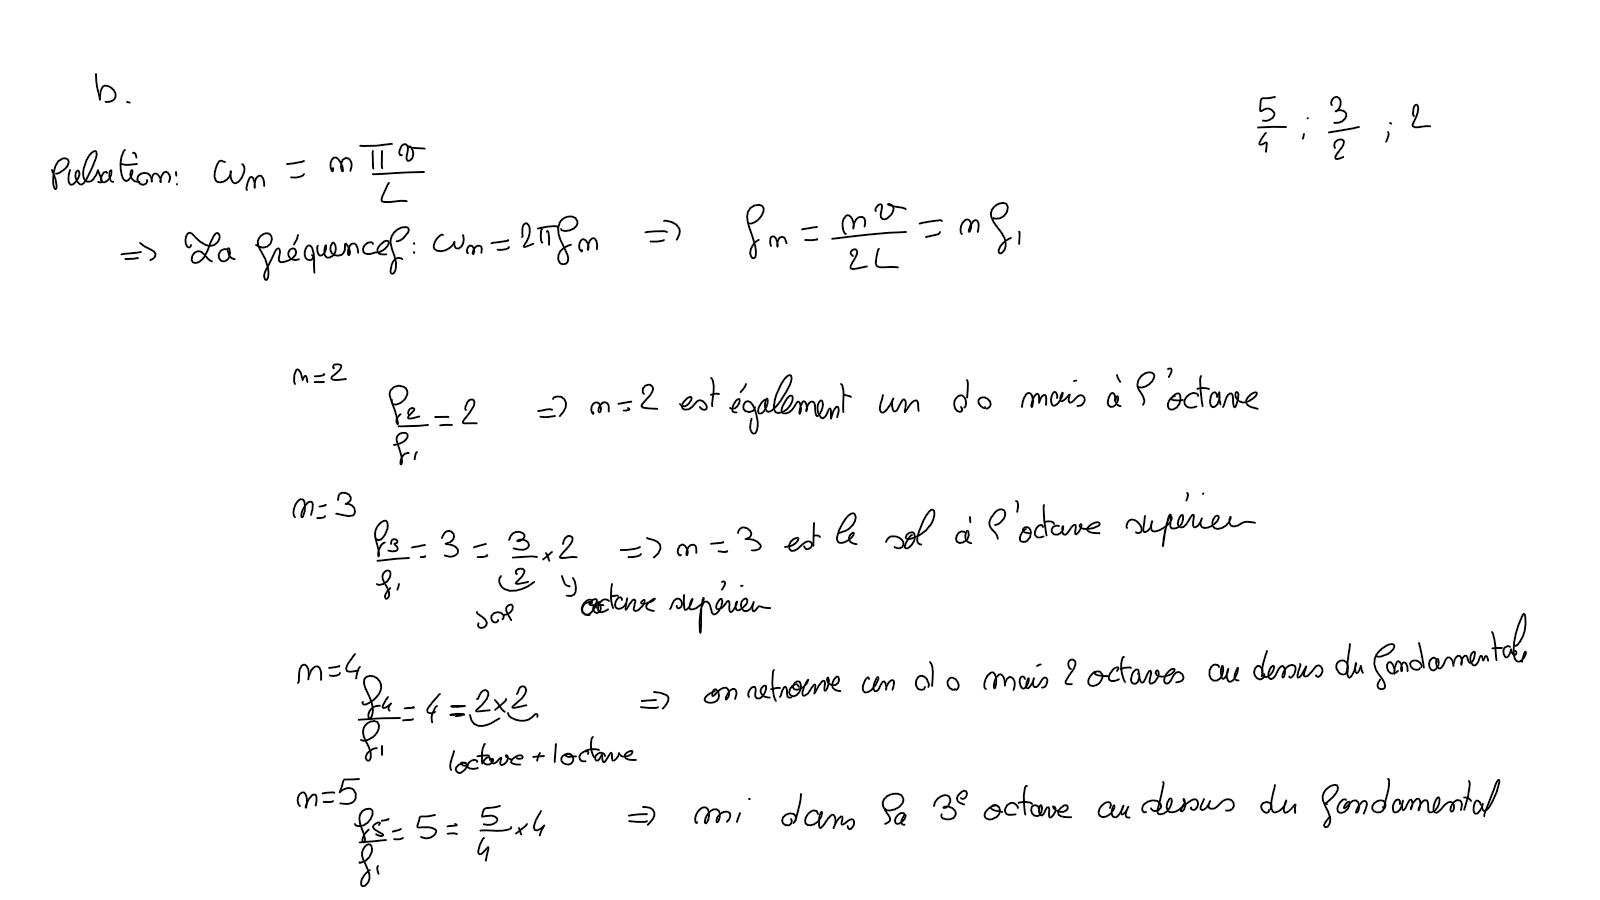 b.
5/4 ; 3/2 ; 2
Pulsation: ωn = n πv/L
=> La fréquence f: ωn = 2πfn => fn = nv/2L = n f1
n=2
f2/f1 = 2 => n=2 est également un do mais à l'octave
n=3
f3/f1 = 3 = 3/2 × 2 => n=3 est le sol à l'octave supérieur
sol octave supérieur
n=4
f4/f1 = 4 = 2×2 => on retrouve un do mais 2 octaves au dessus du fondamental
1octave + 1octave
n=5
f5/f1 = 5 = 5/4 × 4 => mi dans la 3e octave au dessus du fondamental